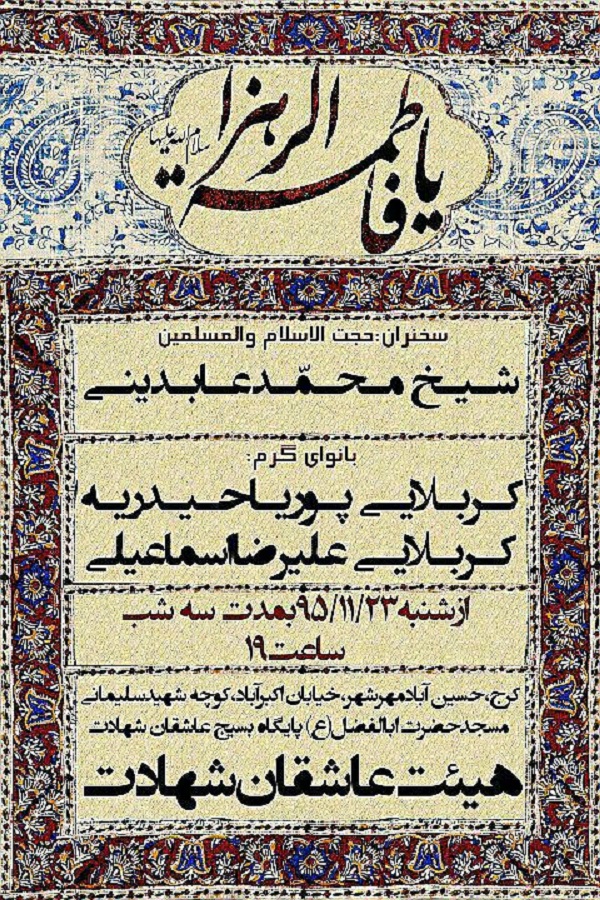 یا فاطمه الزهرا
سلام الله علیها
سخنران:حجت الاسلام والمسلمین
شیخ محمّد عابدینی
بانوای گرم:
کربلایی پوریا حیدریه
کربلایی علیرضا اسماعیلی
از شنبه ۹۵/۱۱/۲۳ بمدت سه شب
ساعت ۱۹
کرج، حسین آباد مهرشهر، خیابان اکبرآباد، کوچه شهید سلیمانی
مسجد حضرت ابالفضل(ع) پایگاه بسیج عاشقان شهادت
هیئت عاشقان شهادت